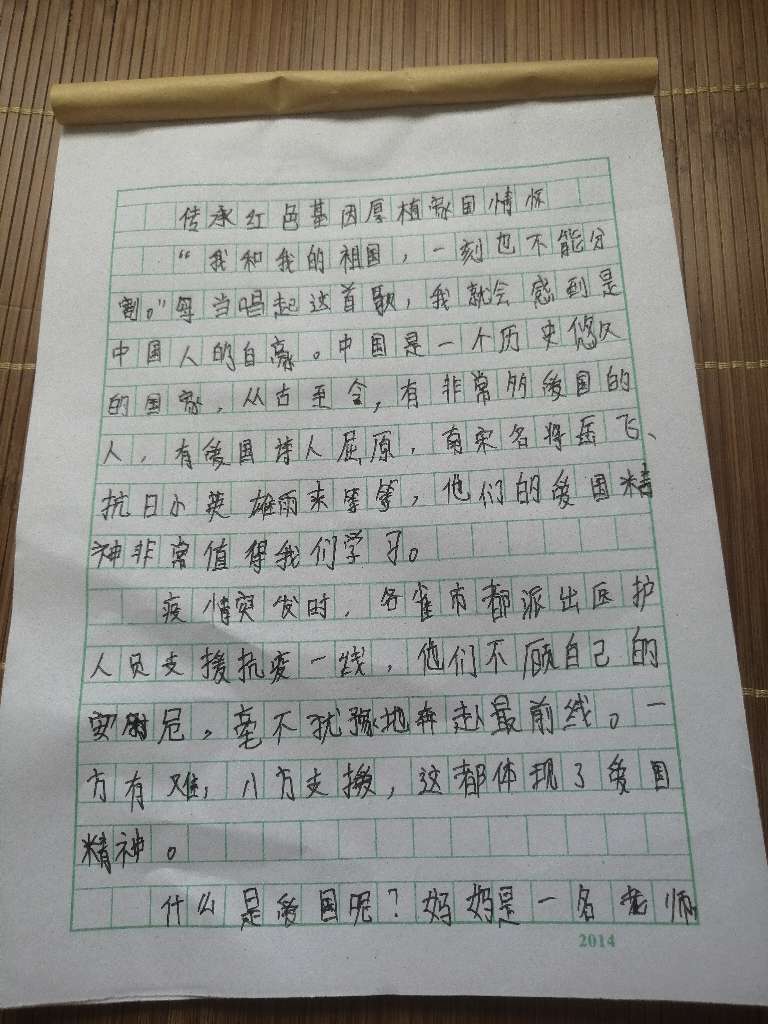 传承红色基因厚植家国情怀
“我和我的祖国，一刻也不能分
割。”每当唱起这首歌，我就会感到是
中国人的自豪。中国是一个历史悠久
的国家，从古至今，有非常多爱国的
人，有爱国诗人屈原，南宋名将岳飞、
抗日小英雄雨来等等，他们的爱国精
神非常值得我们学习。
疫情突发时，各省市都派出医护
人员支援抗疫一线，他们不顾自己的
安危，毫不犹豫地奔赴最前线。一
方有难，八方支援，这都体现了爱国
精神。
什么是爱国呢？妈妈是一名老师
2014